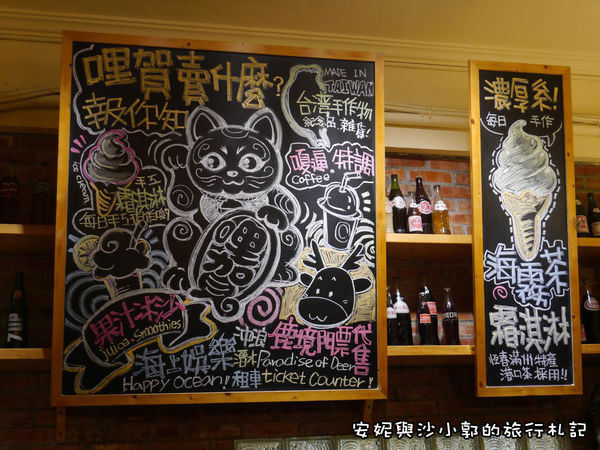 哩賀賣什麼?
報你知
MADE IN
TAIWAN
台灣手作物
紀念品、雜貨!
嘎逼、特調
Coffee
ice cream
手工
霜淇淋
哩賀
果汁冰沙
juice、Smoothies
海上娛樂
鹿境門票代售
Paradise of Deer
Happy Ocean!
租車 ticket Counter!
濃厚系!
每日手作
海霧茶
霜淇淋
恆春滿州特產
港口茶採用!!
7UP
安妮與沙小郭的旅行札記